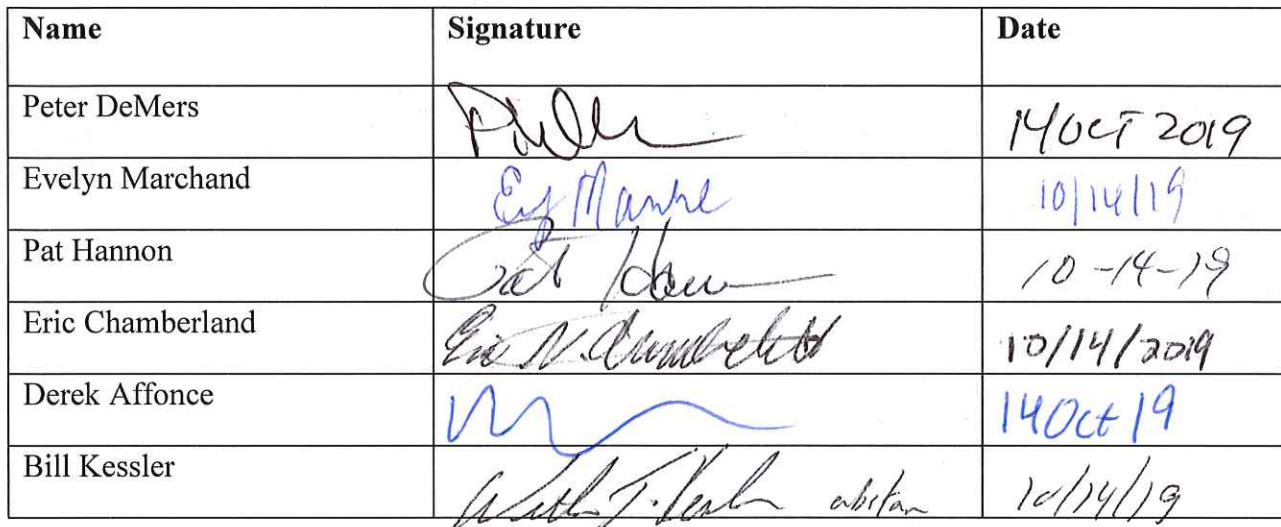 Name Signature Date
Peter DeMers 14 OCT 2019
Evelyn Marchand 10/14/19
Pat Hannon Pat 10-14-19
Eric Chamberland Eric N. 10/14/2019
Derek Affonce 14 Oct 19
Bill Kessler 10/14/19